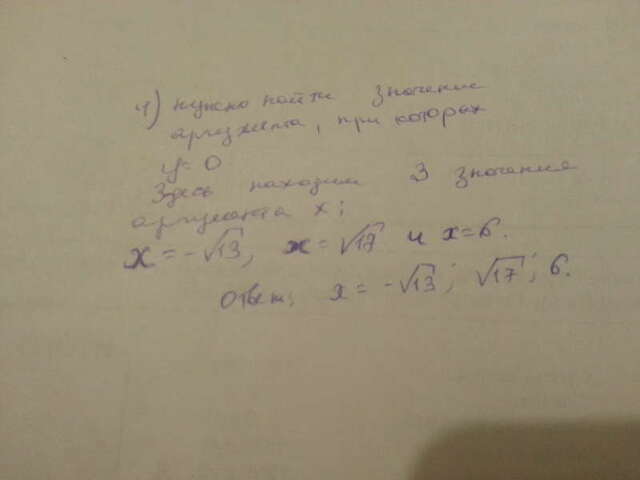 4) нужно найти значение
аргумента, при которых
y = 0
Здесь находим 3 значения
аргумента x;
x = -√13, x = √17 и x = 6.
Ответ; x = -√13; √17; 6.